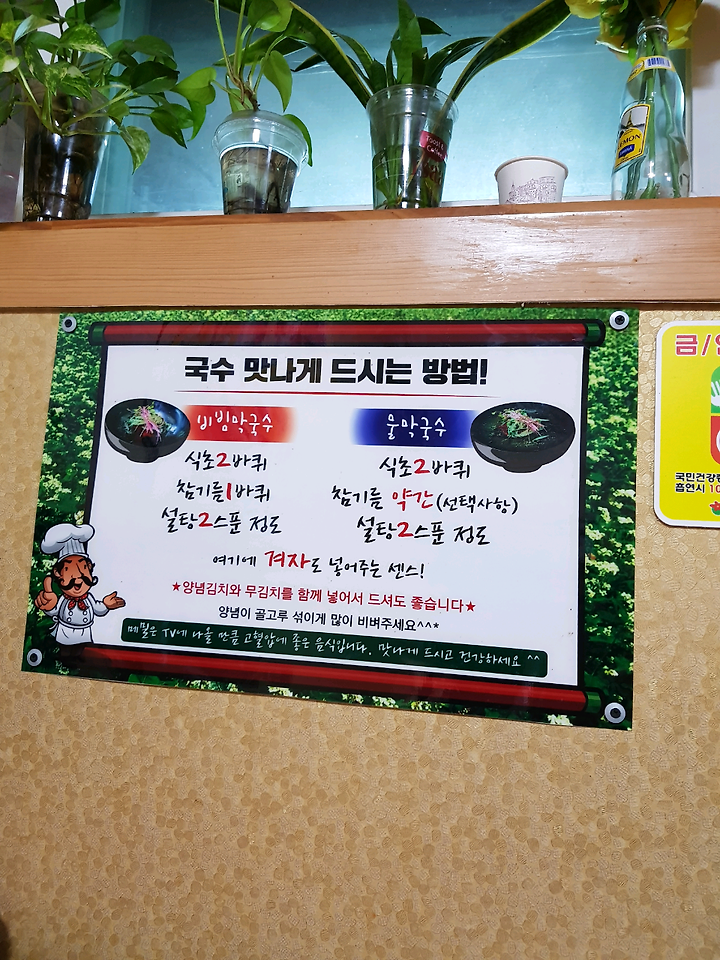 LEMON
국수 맛나게 드시는 방법!
비빔막국수
식초2바퀴
참기름1바퀴
설탕2스푼 정도
물막국수
식초2바퀴
참기름 약간(선택사항)
설탕2스푼 정도
여기에 겨자도 넣어주는 센스!
★양념김치와 무김치를 함께 넣어서 드셔도 좋습니다★
양념이 골고루 섞이게 많이 비벼주세요^^*
메밀은 TV에 나올 만큼 고혈압에 좋은 음식입니다. 맛나게 드시고 건강하세요 ^^
금/
국민건강
흡연시 10